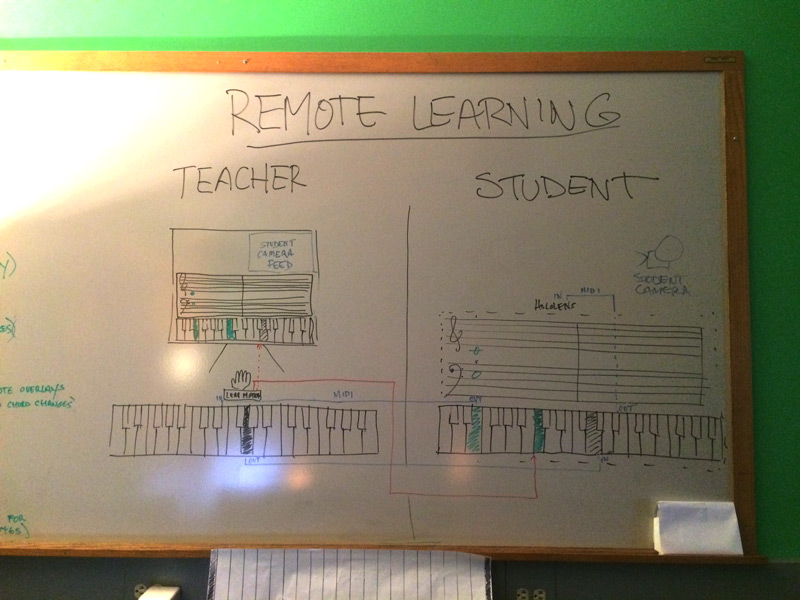 REMOTE LEARNING
TEACHER
STUDENT
STUDENT
CAMERA
FEED
STUDENT
CAMERA
IN
MIDI
HOLOLENS
IN
LEAP MOTION
MIDI
OUT
OUT
OUT
IN
Y)
ES)
OTE OVERLAYS
D CHORD CHANGES
FOR